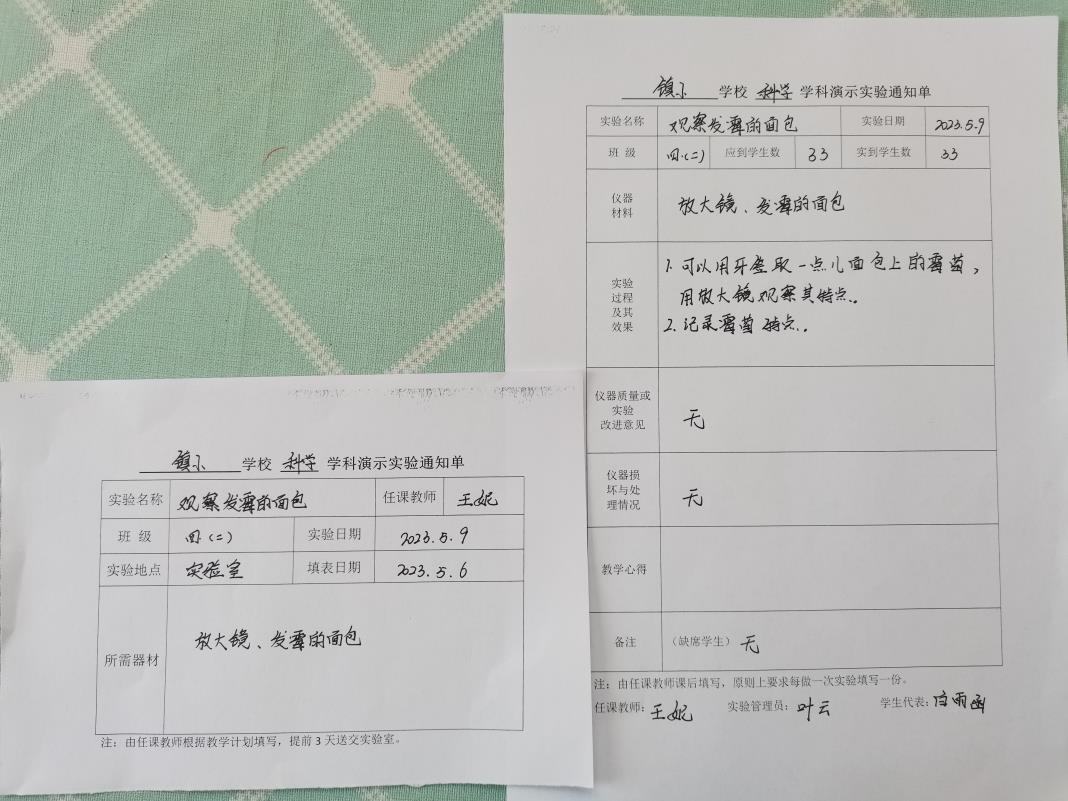 镇小 学校 科学 学科演示实验通知单
实验名称 观察发霉的面包 任课教师 王妮
班 级 四(二) 实验日期 2023.5.9
实验地点 实验室 填表日期 2023.5.6
所需器材 放大镜、发霉的面包
注:由任课教师根据教学计划填写,提前3天送交实验室。
镇小 学校 科学 学科演示实验通知单
实验名称 观察发霉的面包 实验日期 2023.5.9
班 级 四.(二) 应到学生数 33 实到学生数 33
仪器
材料
放大镜、发霉的面包
实验
过程
及其
效果
1.可以用牙签取一点儿面包上的霉菌,
用放大镜观察其特点.
2.记录霉菌特点.
仪器质量或
实验
改进意见
无
仪器损
坏与处
理情况
无
教学心得
备注 (缺席学生) 无
注:由任课教师课后填写,原则上要求每做一次实验填写一份。
任课教师:王妮 实验管理员:叶云 学生代表:雨函